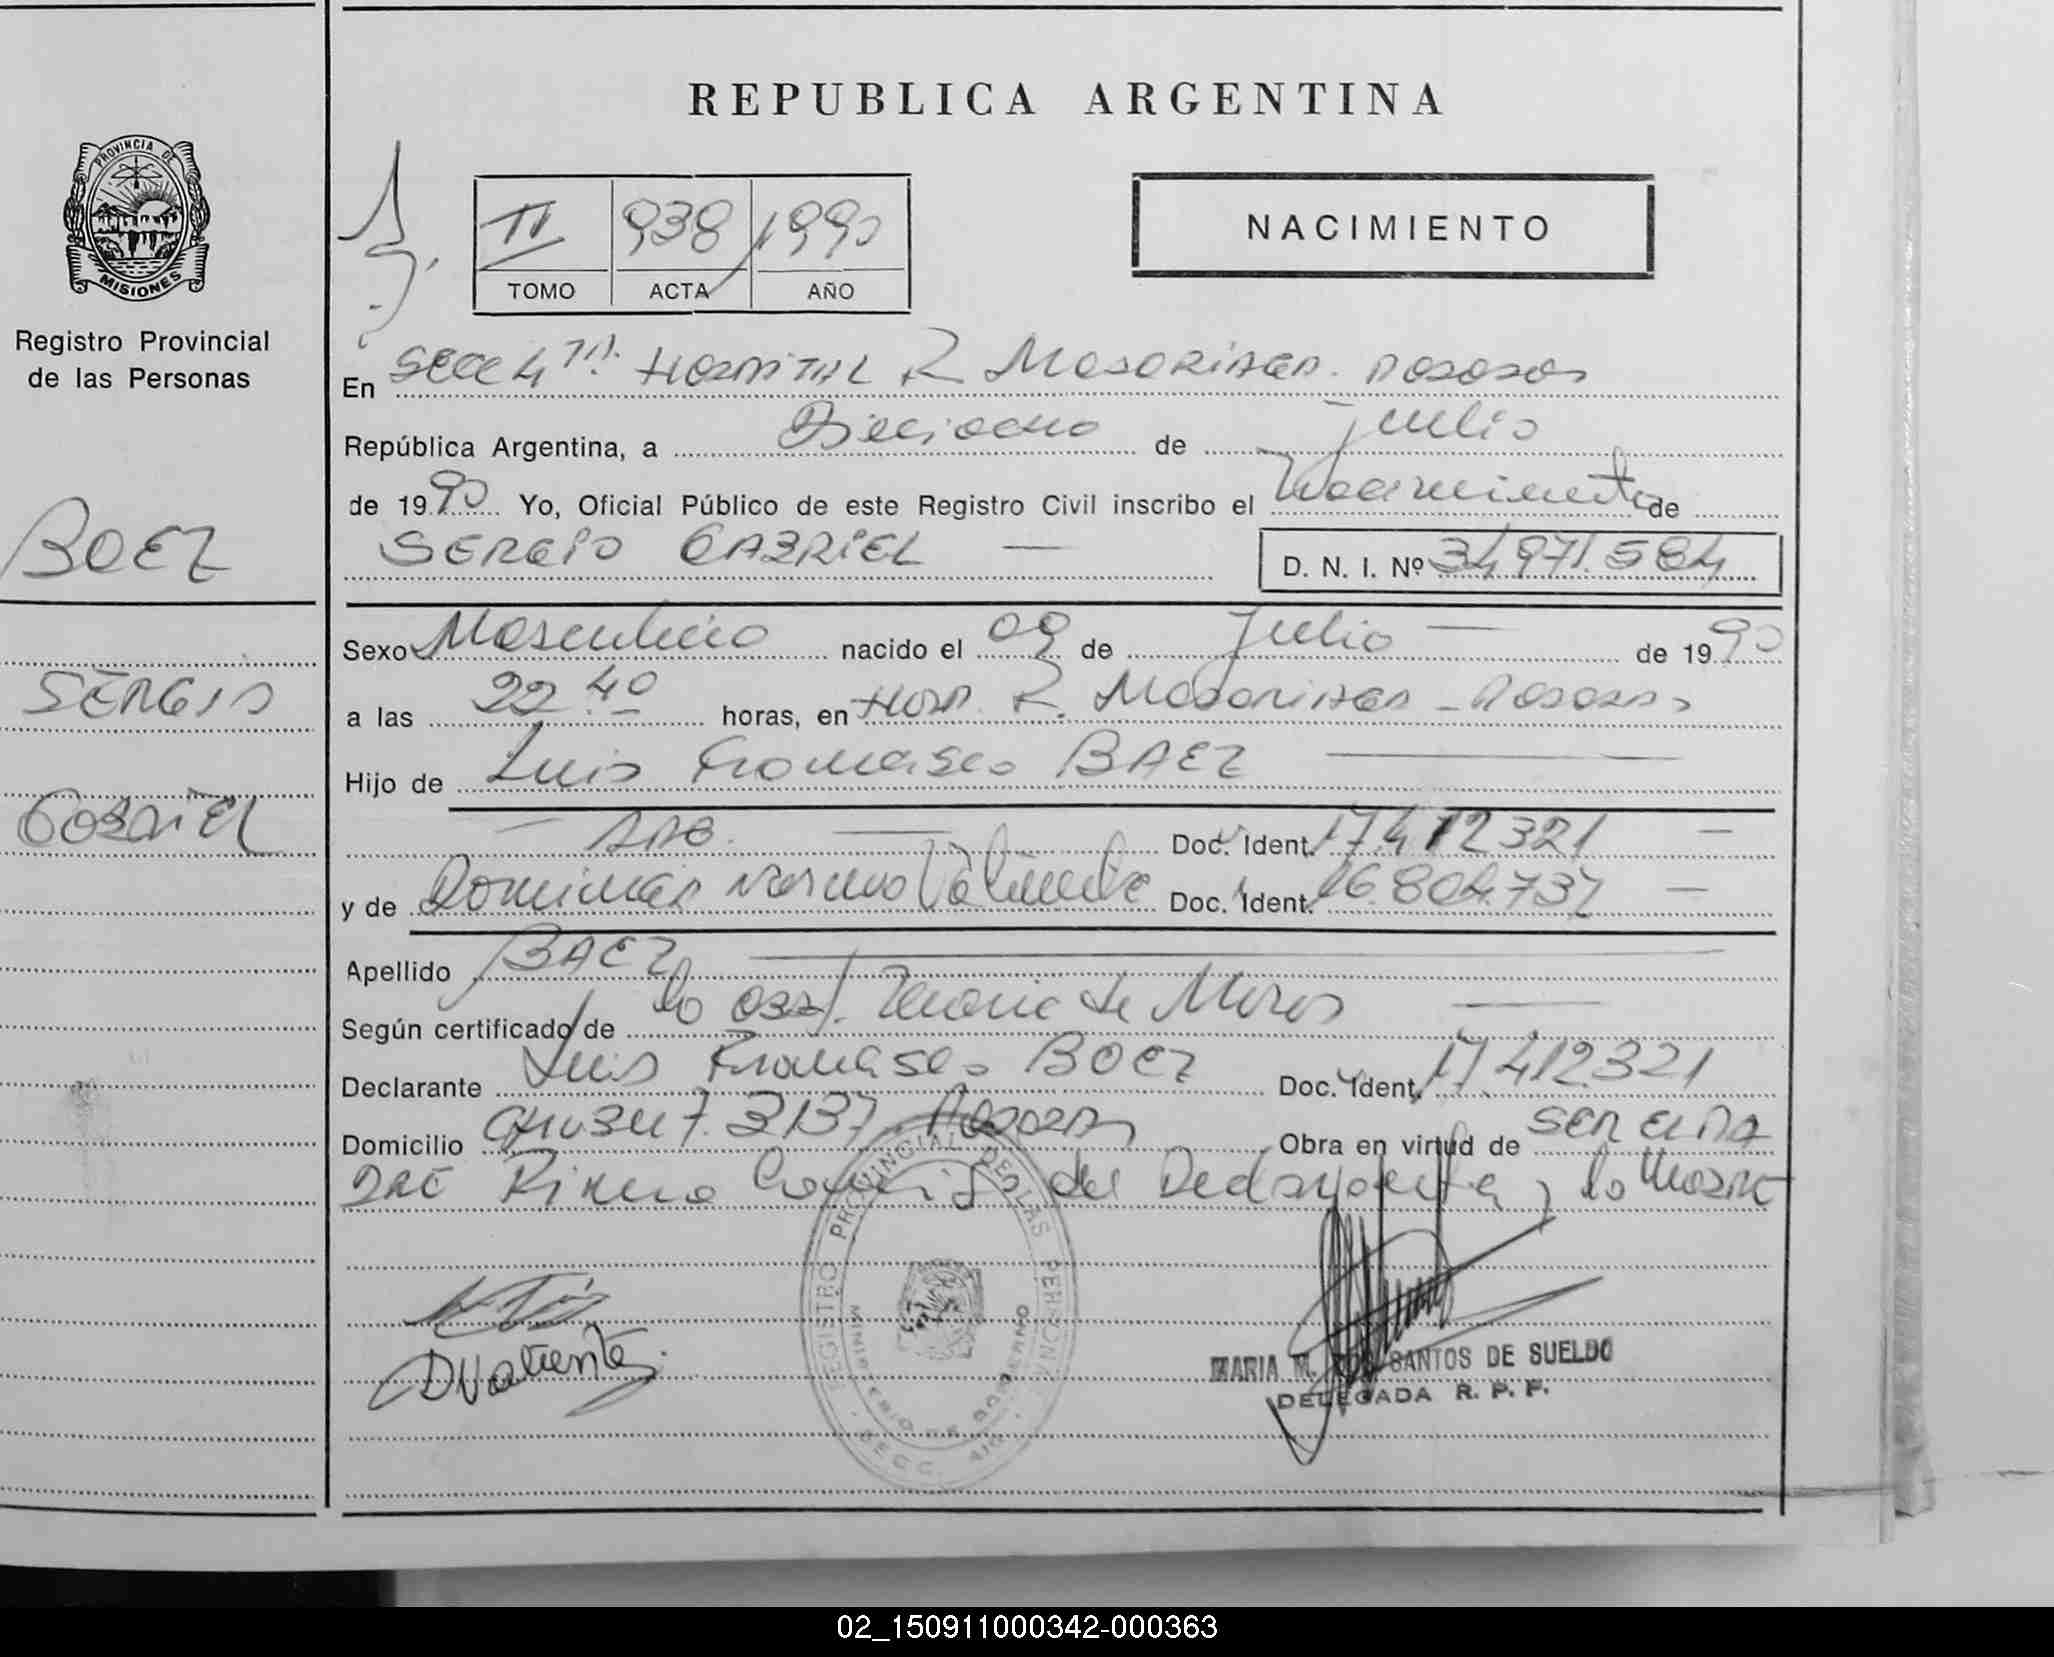 REPUBLICA ARGENTINA
PROVINCIA DE
MISIONES
Registro Provincial
de las Personas
II 938 1990
TOMO ACTA AÑO
NACIMIENTO
En Secc 4ta. Hospital R Madariaga. Posadas
República Argentina, a Dieciocho de julio
de 1990 Yo, Oficial Público de este Registro Civil inscribo el Nacimiento de
BAEZ
SERGIO GABRIEL — D. N. I. Nº 34971.584
SERGIO
GABRIEL
Sexo Masculino nacido el 09 de Julio — de 1990
a las 22 40 horas, en Hosp. R. Madariaga - Posadas
Hijo de Luis Francisco BAEZ —
Doc. Ident. 17.412321 —
y de Dominga Norma Valiente Doc. Ident. 16.804.737 —
Apellido BAEZ —
Según certificado de la Obst. de Moros —
Declarante Luis Francisco BAEZ Doc. Ident. 17412321
Domicilio 3137 Posadas Obra en virtud de SER el PA
DRE Firma Conmigo del Declarante y la Madre
DValiente
REGISTRO PROVINCIAL DE LAS PERSONAS
MINISTERIO DE GOBIERNO
MARIA M. DOS SANTOS DE SUELDO
DELEGADA R. P. P.
02_150911000342-000363